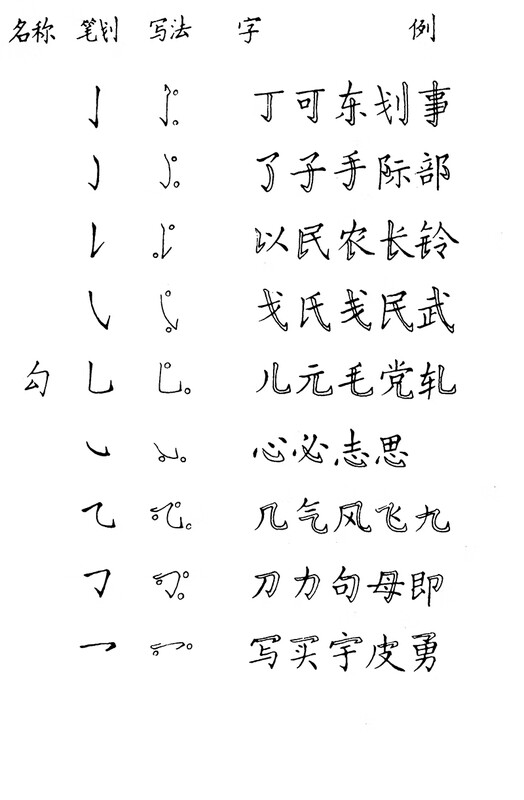 名称 笔划 写法 字 例
亅 丁可东划事
了子手际部
以民农长铃
戈氏戋民武
勾 乚 儿元毛党轧
心必志思
乙 几气风飞九
刀力句母即
写买宇皮勇